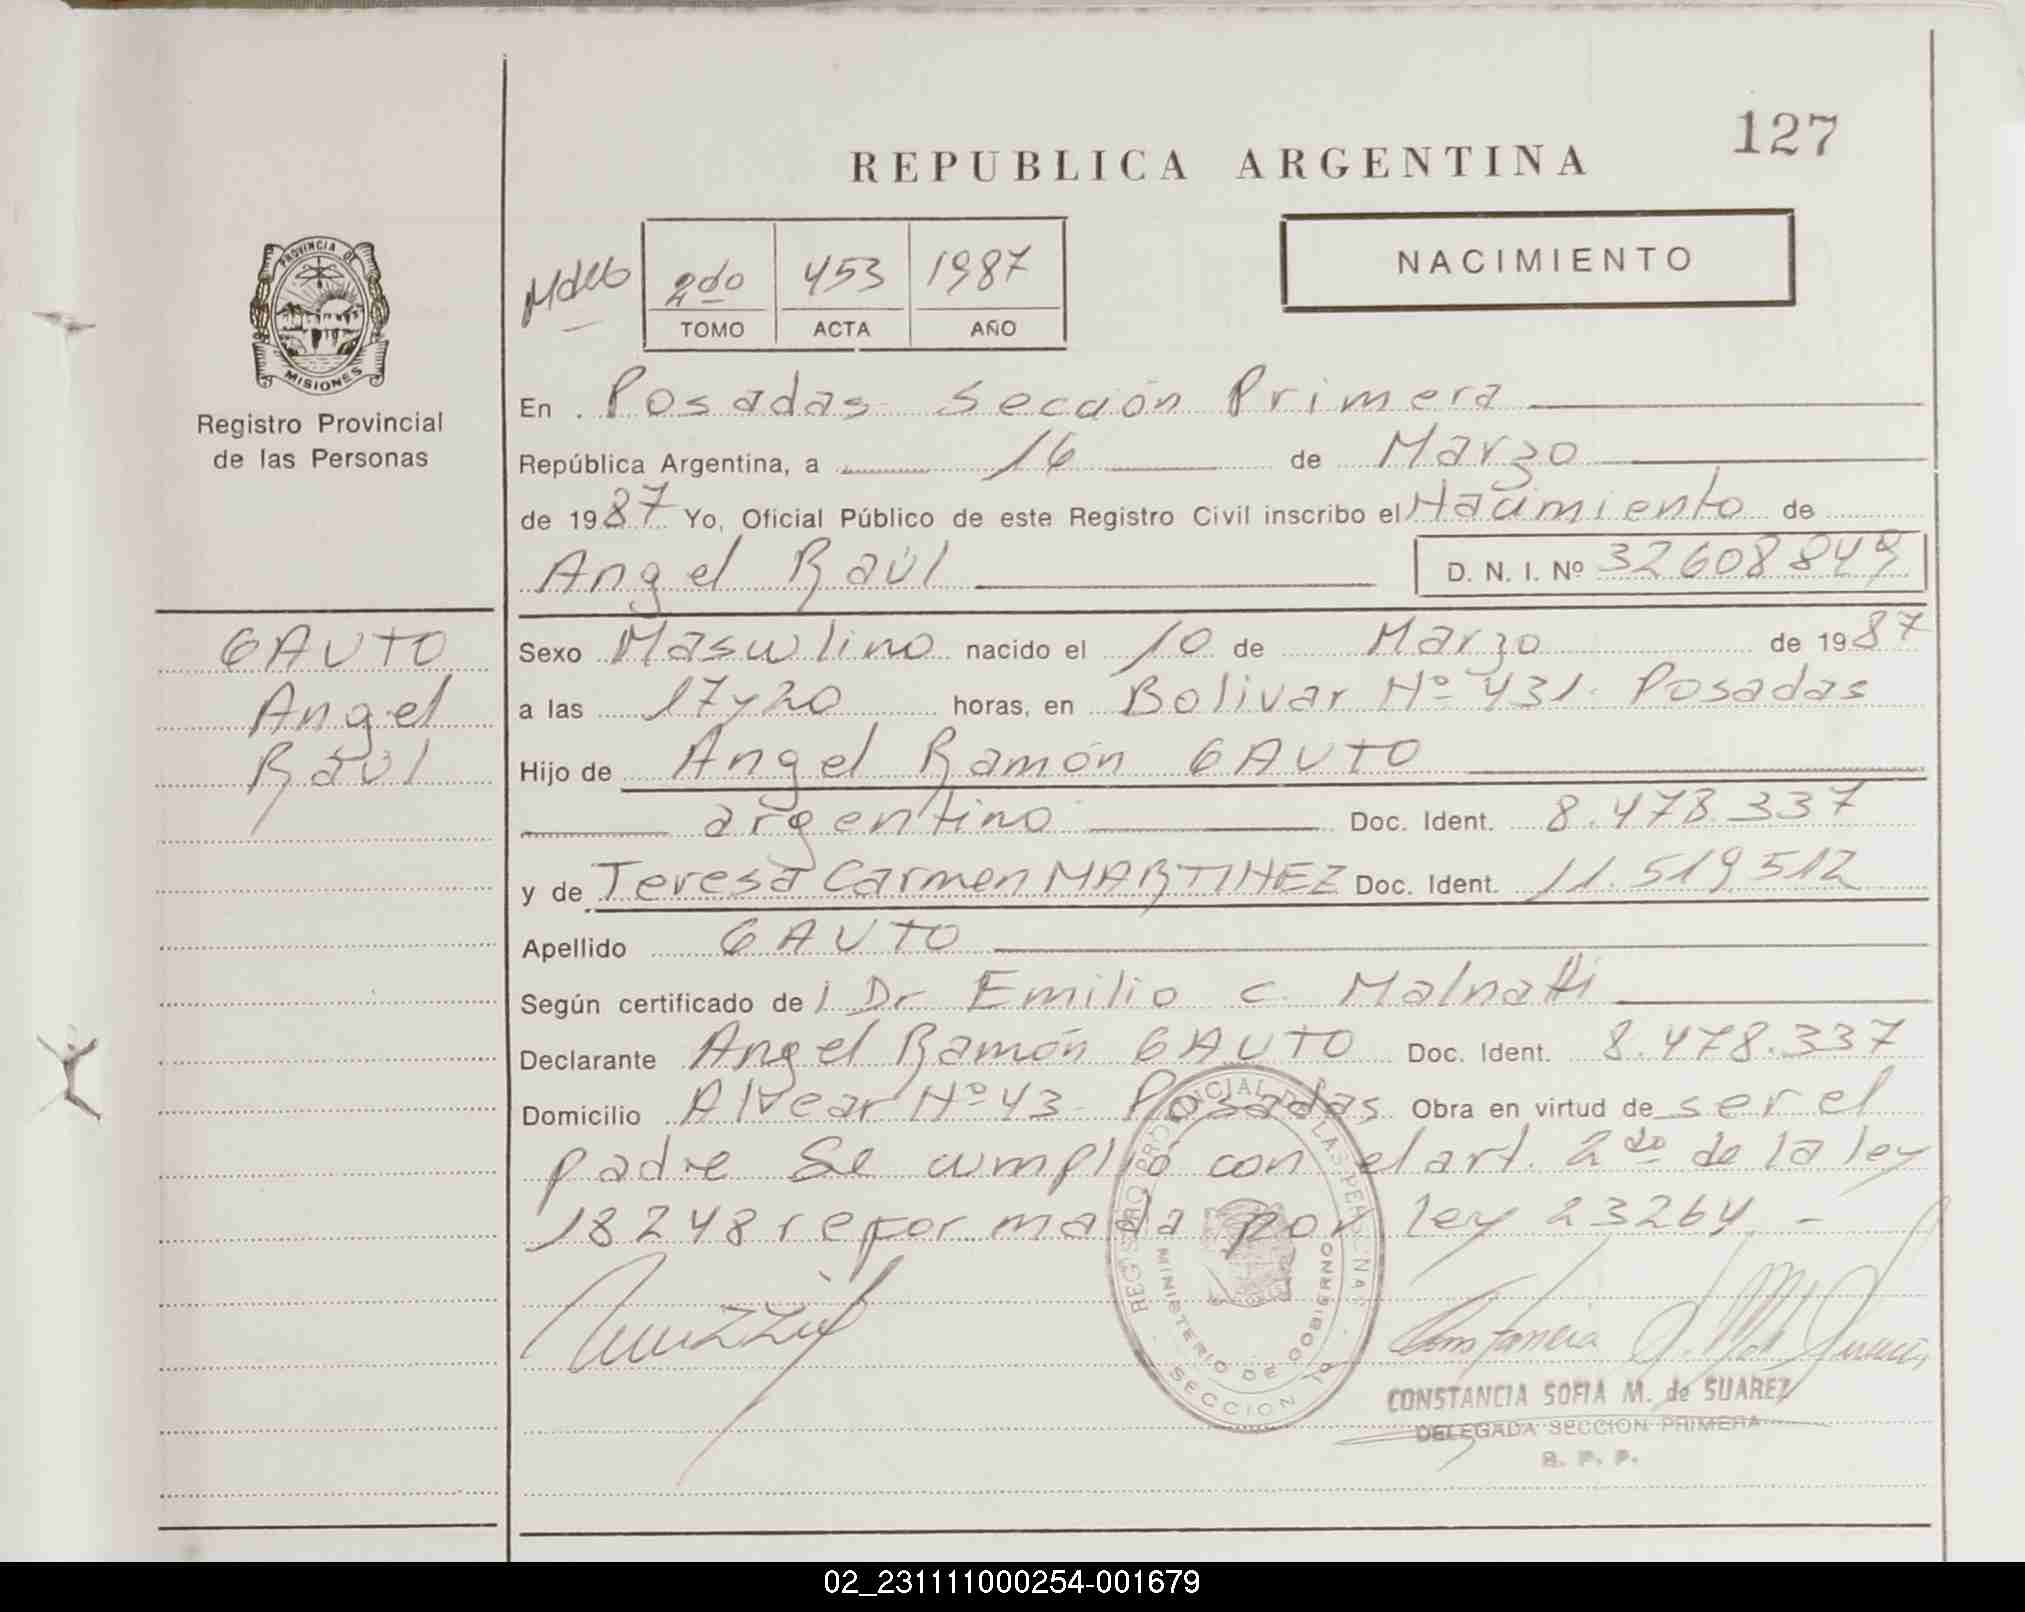 127
REPUBLICA ARGENTINA
PROVINCIA DE
MISIONES
Registro Provincial
de las Personas
2do 453 1987
TOMO ACTA AÑO
NACIMIENTO
En Posadas Sección Primera
República Argentina, a 16 de Marzo
de 1987 Yo, Oficial Público de este Registro Civil inscribo el Nacimiento de
Angel Raúl D. N. I. Nº 32608849
GAUTO
Angel
Raúl
Sexo Masculino nacido el 10 de Marzo de 1987
a las 17y20 horas, en Bolivar Nº 431. Posadas
Hijo de Angel Ramón GAUTO
argentino Doc. Ident. 8.478.337
y de Teresa Carmen MARTINEZ Doc. Ident. 11.519.512
Apellido GAUTO
Según certificado del Dr Emilio C. Malnatti
Declarante Angel Ramón GAUTO Doc. Ident. 8.478.337
Domicilio Alvear Nº 43 Posadas Obra en virtud de ser el
padre Se cumplió con el art. 2do de la ley
18248 reformada por ley 23264 -
REGISTRO PROVINCIAL DE LAS PERSONAS
MINISTERIO DE GOBIERNO
SECCION 1a
CONSTANCIA SOFIA M. de SUAREZ
DELEGADA SECCION PRIMERA
R. P. P.
02_231111000254-001679